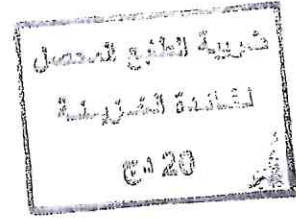 ضريبة الطابع المحصل
لفائدة الخزينة
20 دج